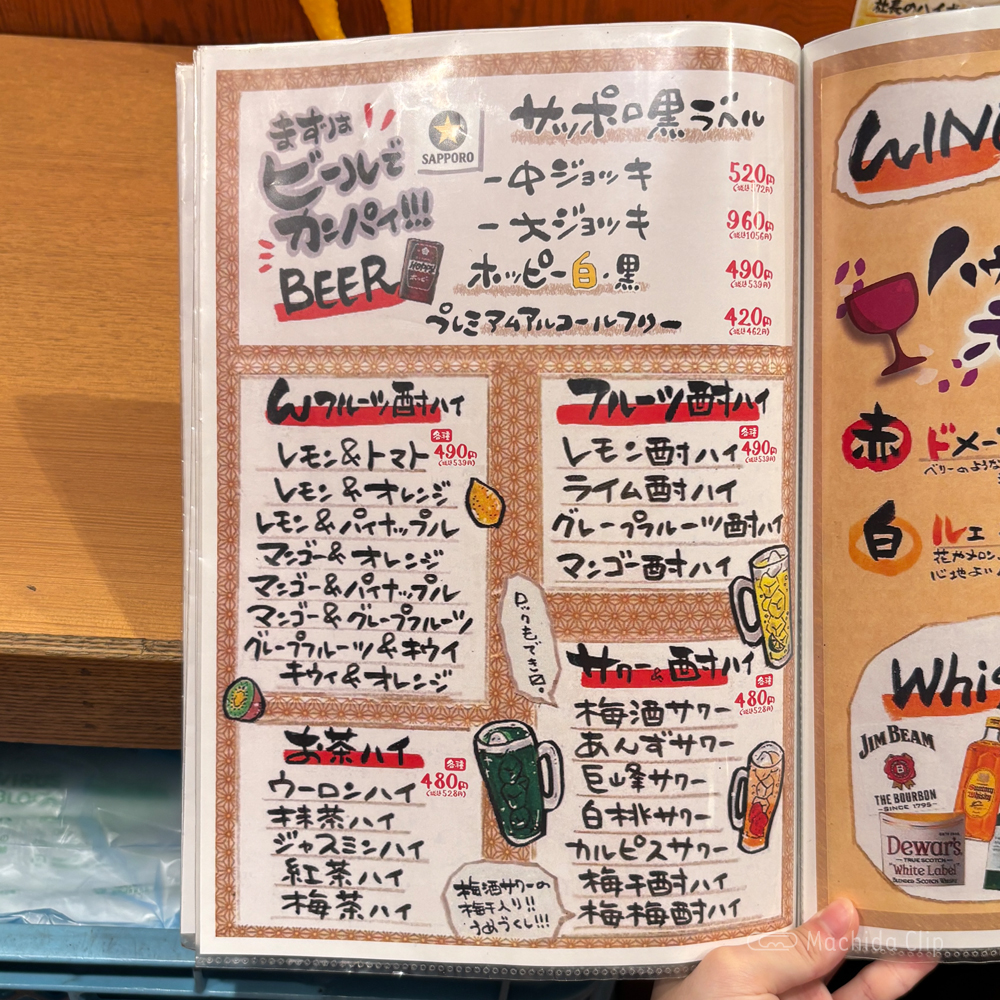 社長のハイボ
まずは
ビールで
カンパイ!!!
BEER
SAPPORO
HOPPY
サッポロ黒ラベル
一中ジョッキ 520円
(税込572円)
一大ジョッキ 960円
(税込1056円)
ホッピー白・黒 490円
(税込539円)
プレミアムアルコールフリー 420円
(税込462円)
Wフルーツ酎ハイ
各種
レモン&トマト 490円
(税込539円)
レモン&オレンジ
レモン&パイナップル
マンゴー&オレンジ
マンゴー&パイナップル
マンゴー&グレープフルーツ
グレープフルーツ&キウイ
キウィ&オレンジ
お茶ハイ
各種
ウーロンハイ 480円
(税込528円)
抹茶ハイ
ジャスミンハイ
紅茶ハイ
梅茶ハイ
フルーツ酎ハイ
各種
レモン酎ハイ 490円
(税込539円)
ライム酎ハイ
グレープフルーツ酎ハイ
マンゴー酎ハイ
ロックもできる。
サワー&酎ハイ
各種
梅酒サワー 480円
(税込528円)
あんずサワー
巨峰サワー
白桃サワー
カルピスサワー
梅干酎ハイ
梅梅酎ハイ
梅酒サワーの
梅干入り!!
うめづくし!!!
WIN
ハウ
赤
ドメー
ベリーのような
白
ルェ
花やメロン、
心地よい
Whis
JIM BEAM
B
THE BOURBON
SINCE 1795
Dewar's
TRUE SCOTCH
"White Label"
BLENDED SCOTCH WHISKY
Machida Clip